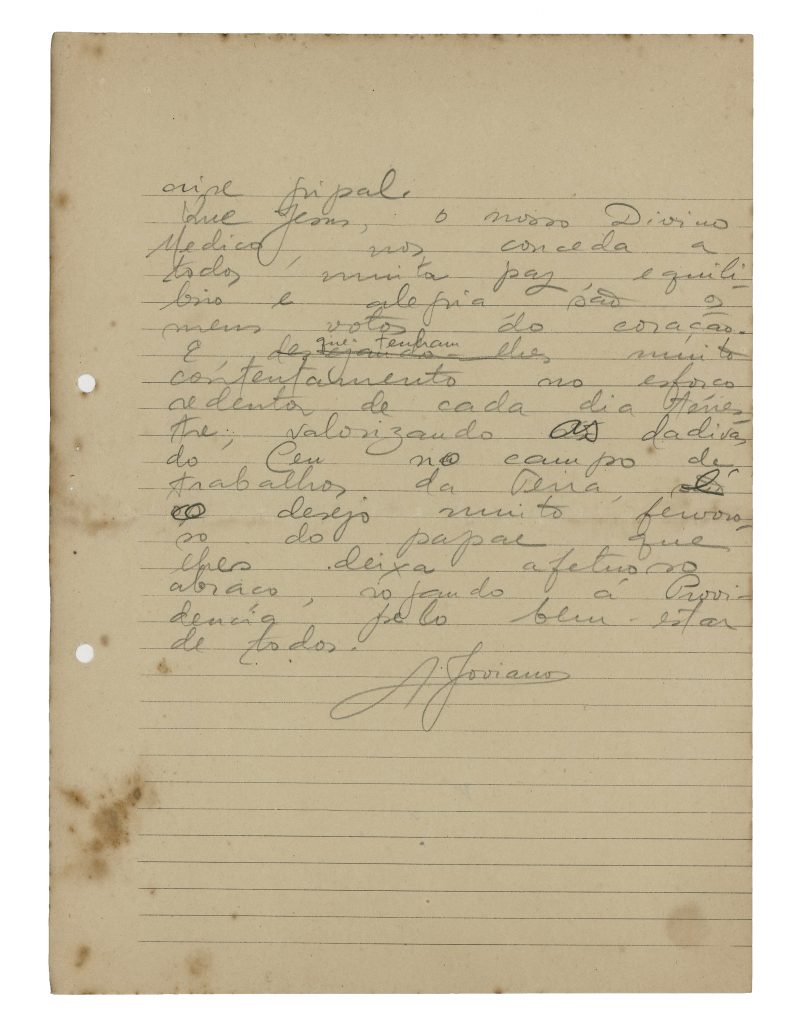 crise gripal.
Que Jesus, o nosso Divino
Medico, nos conceda a
todos, muita paz, equili-
brio e alegria são os
meus votos do coração.
que tenham
E, desejando-lhes muito
contentamento no esforço
redentor de cada dia terres-
tre, valorizando as dadivas
do Ceu no campo de
trabalhos da Terra,
o desejo muito fervoro-
so do papae que
lhes deixa afetuoso
abraço, rogando á Provi-
dencia pelo bem-estar
de todos.
A. Joviano